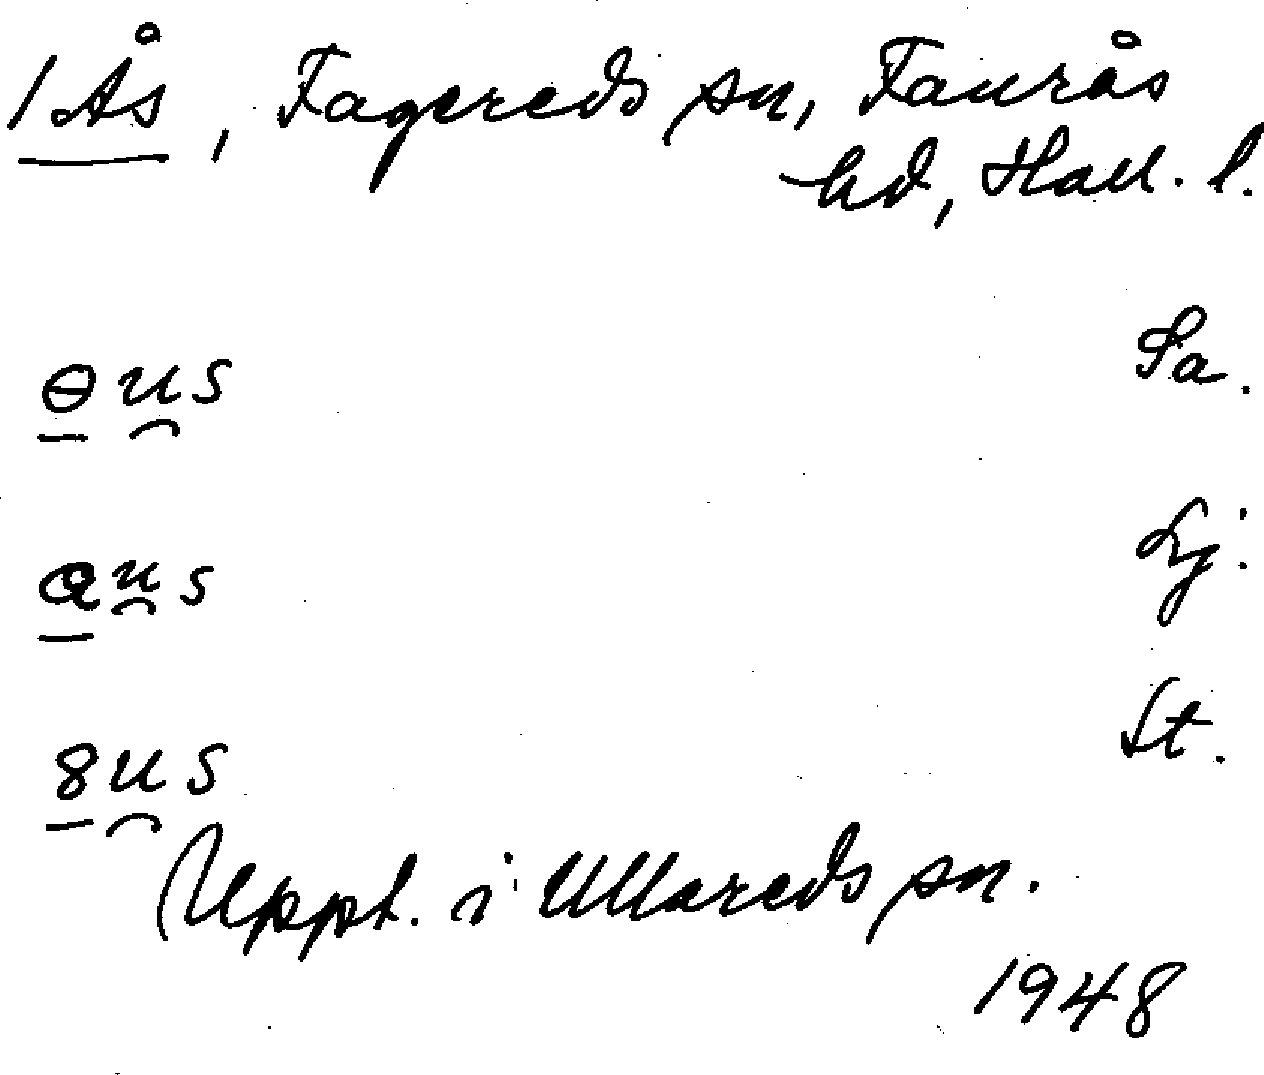 1 Ås, Fagereds sn, Faurås
hd, Hall. l.
ɵu̯s Sa.
au̯s Lj.
8u̯s St.
Uppt. i Ullareds sn.
1948